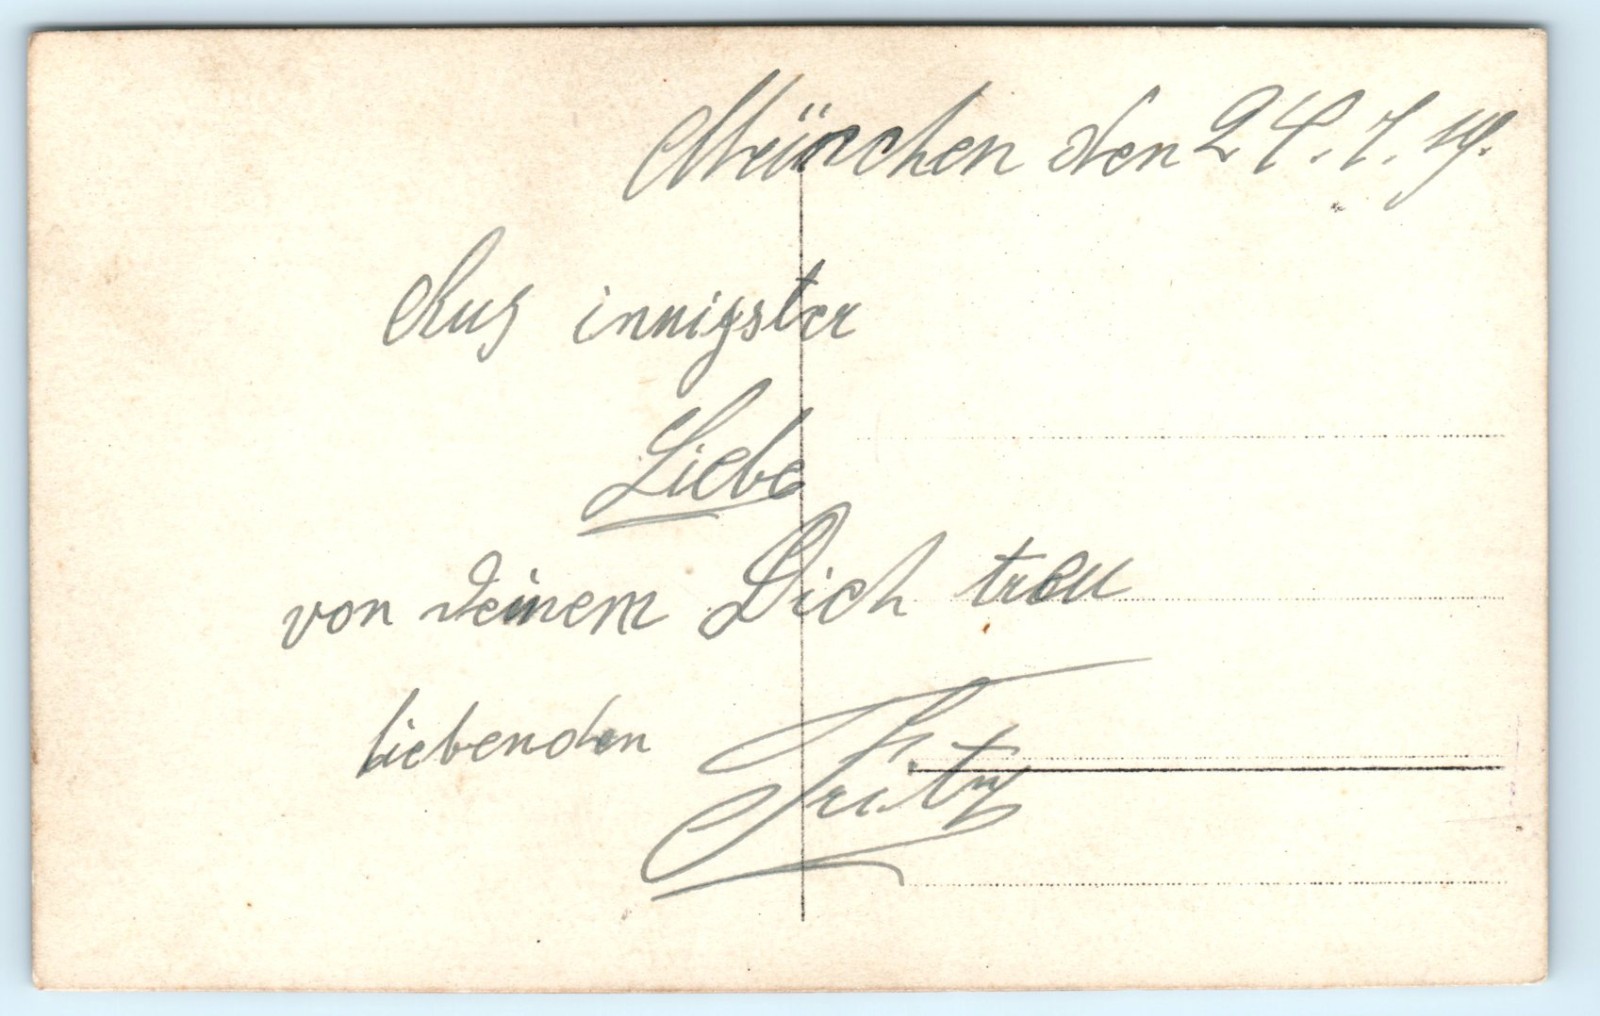 München den 24.7.19.
Aus innigster
Liebe
von Deinem Dich treu
liebenden Fritz